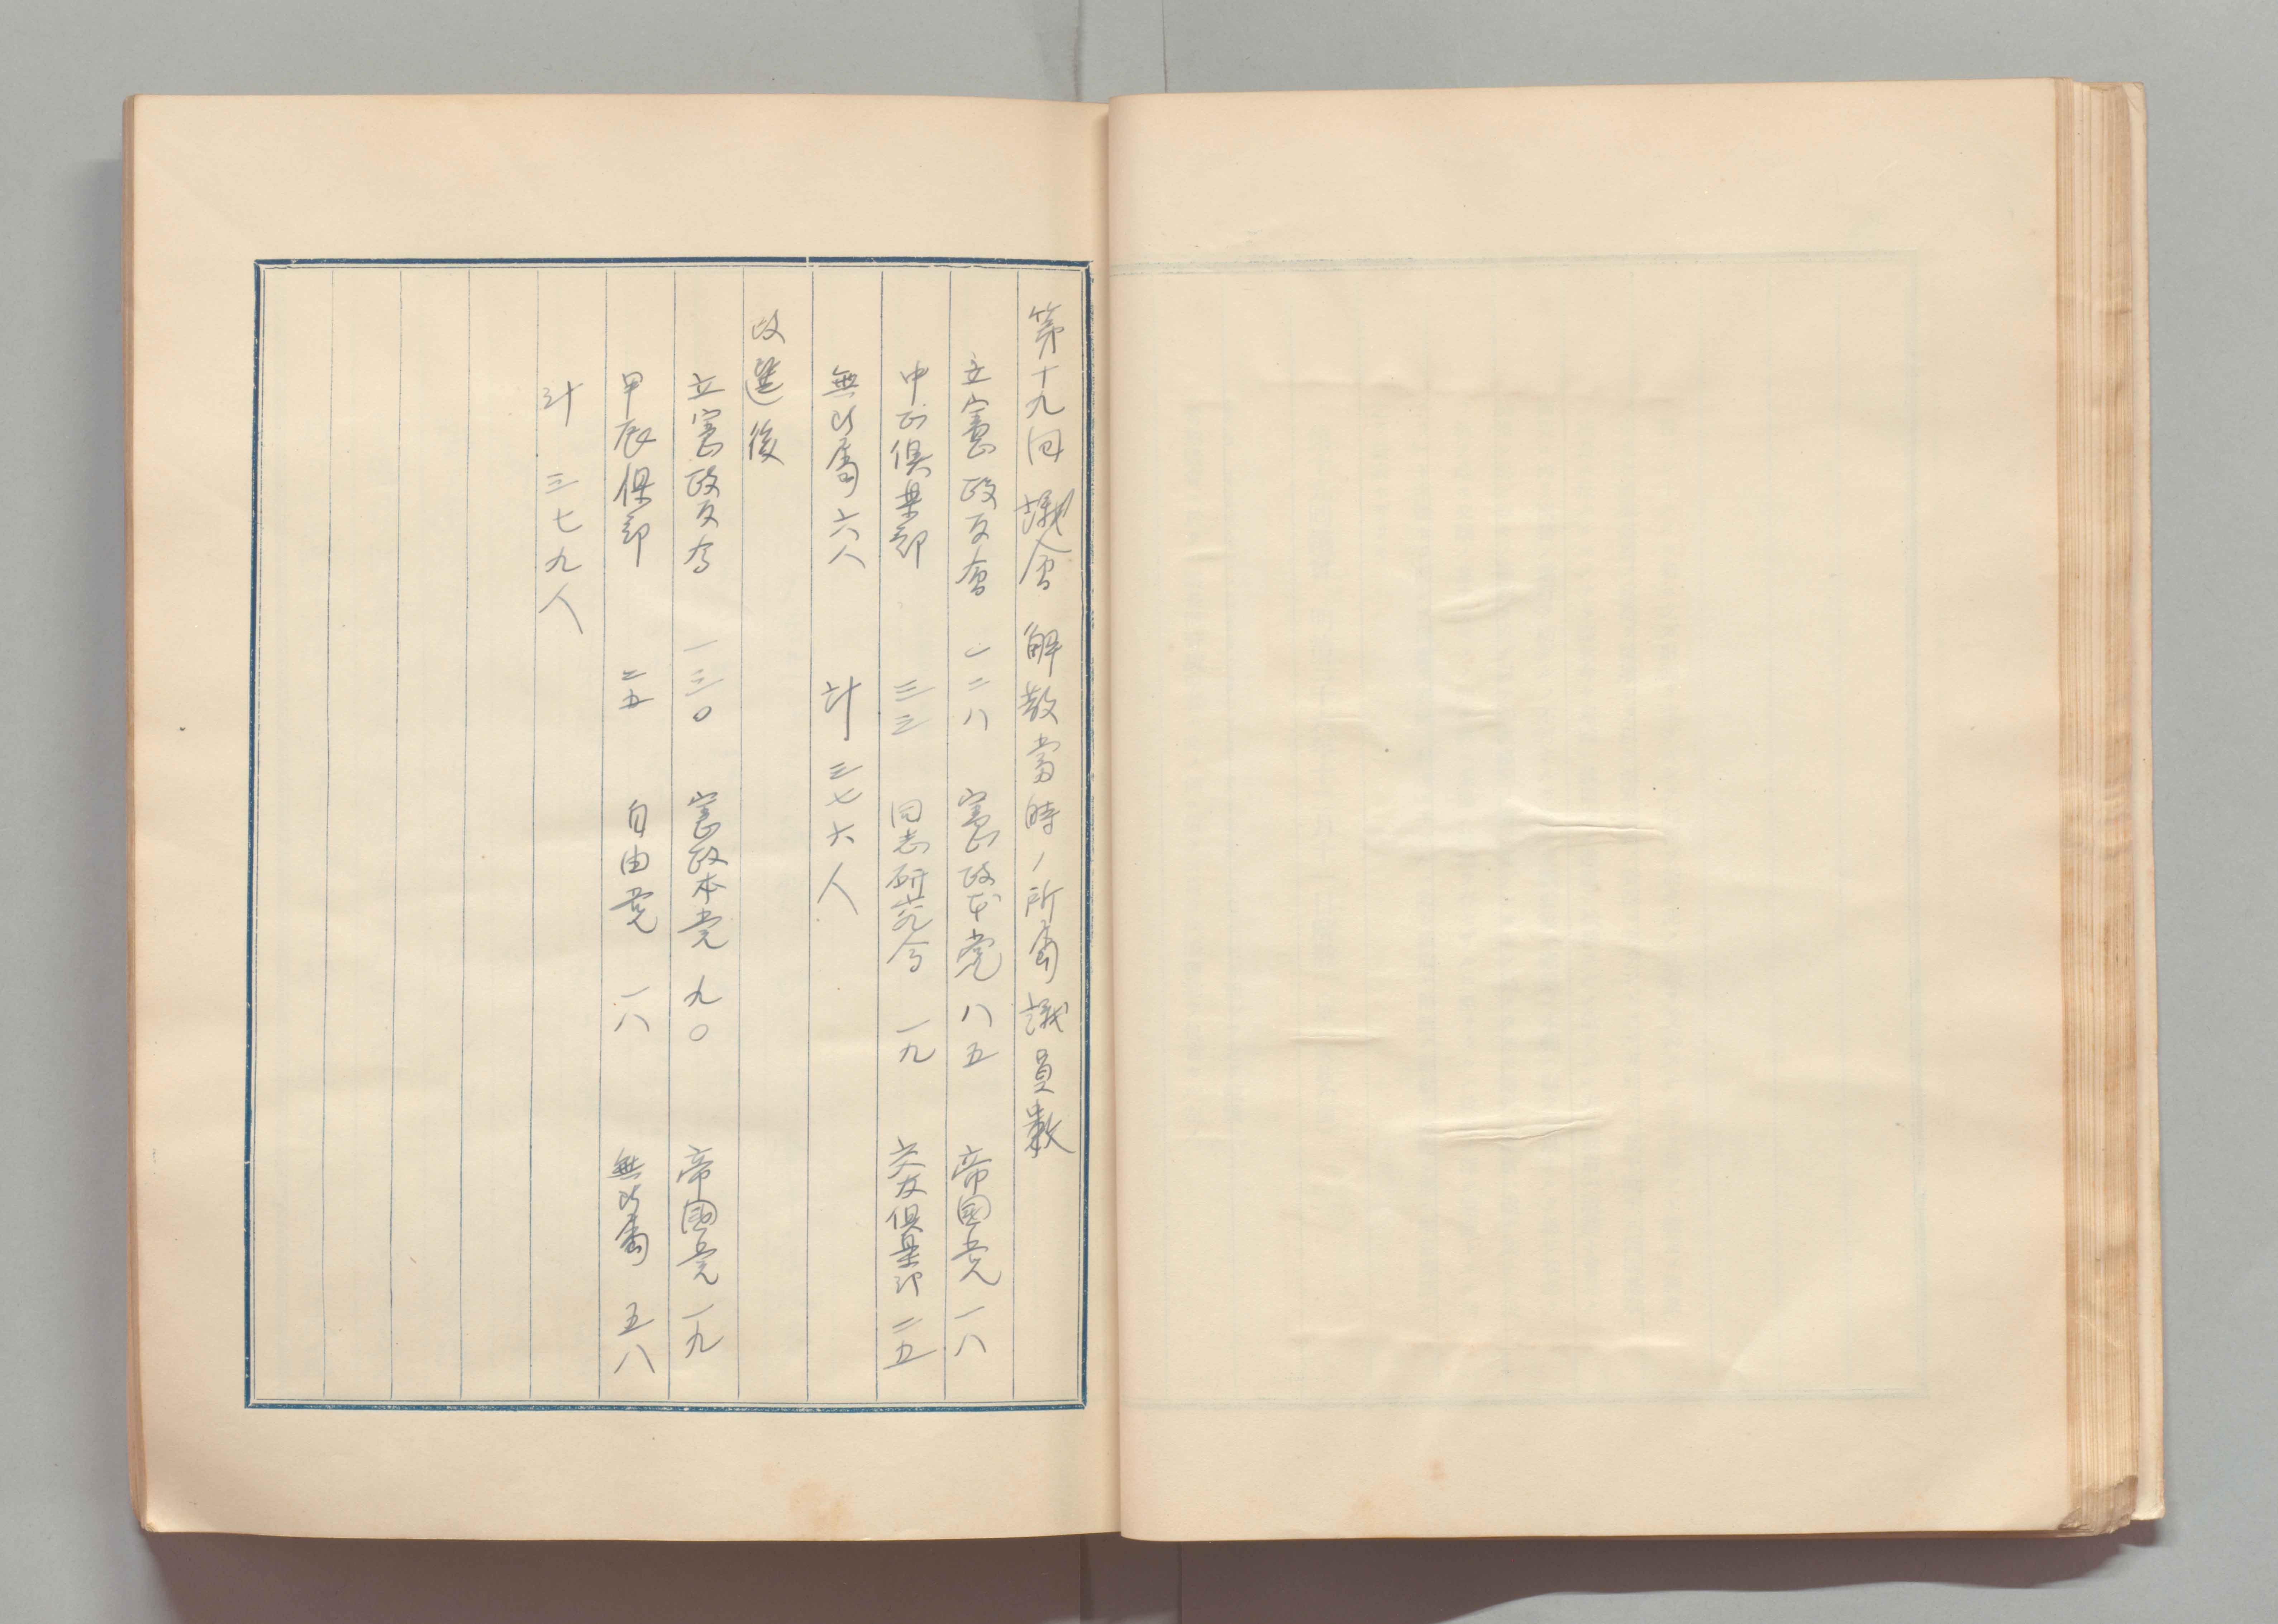 第十九回議会解散当時ノ所属議員数
立憲政友会 一二八 憲政本党 八五 帝国党 一八
中正倶楽部 三三 同志研究会 一九 交友倶楽部 二五
無所属 六人 計 三七六人
改選後
立憲政友会 一三〇 憲政本党 九〇 帝國党 一九
甲辰倶部 二五 自由党 一八 無所属 五八
計 三七九人